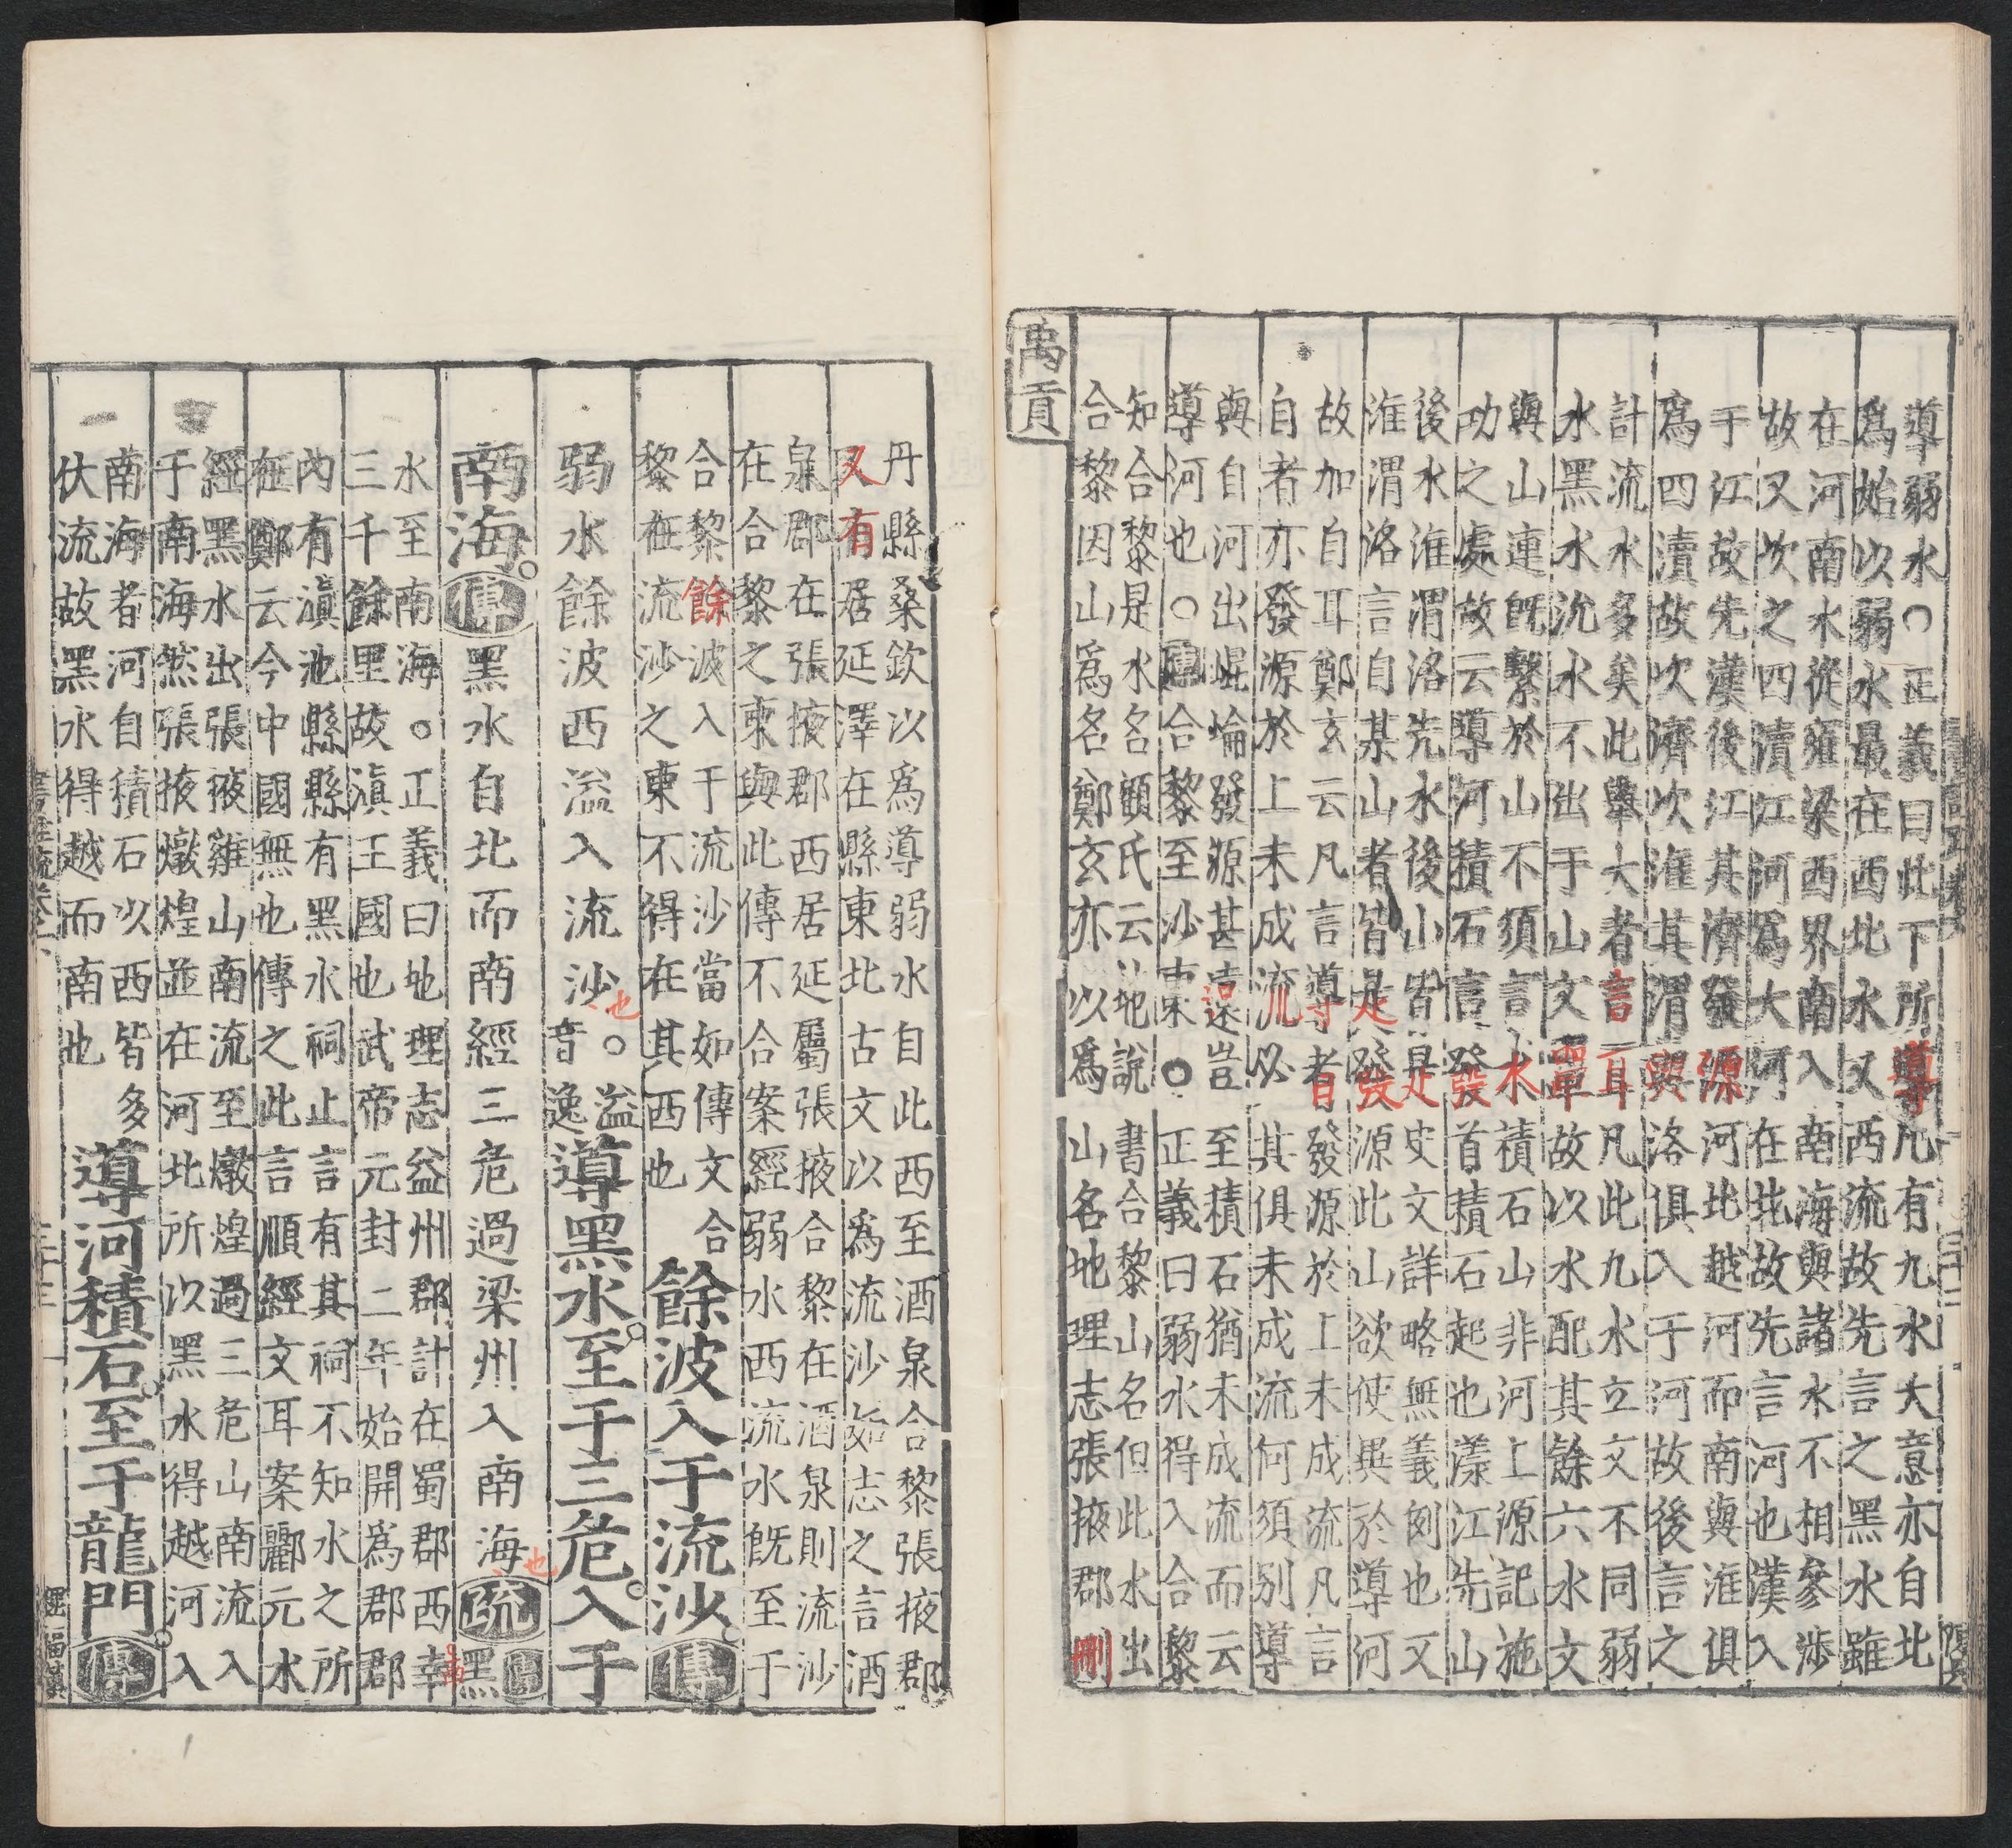 導弱水○正義曰此下所導凡有九水大意亦自北
爲始以弱水最在西北水又西流故先言之黑水雖
在河南水從雍梁西界南入南海與諸水不相參涉
故又次之四瀆江河爲大河在北故先言河也漢入
于江故先漢後江其濟發源河北越河而南與淮俱
爲四瀆故次濟次淮其渭與洛俱入于河故後言之
計流水多矣此舉大者言耳凡此九水立文不同弱
水黑水沇水不出于山文單故以水配其餘六水文
與山連旣繫於山不須言水積石山非河上源記施
功之處故云導河積石言發首積石起也漾江先山
後水淮渭洛先水後山皆是史文詳略無義例也又
淮渭洛言自某山者皆是發源此山欲使異於導河
故加自耳鄭玄云凡言導者發源於上未成流凡言
自者亦發源於上未成流必其俱未成流何須別導
與自河出崐崘發源甚遠豈至積石猶未成流而云
導河也○傳合黎至沙東○正義曰弱水得入合黎
知合黎是水名顧氏云地說書合黎山名但此水出
合黎因山爲名鄭玄亦以爲山名地理志張掖郡刪
禹貢
丹縣桑欽以爲導弱水自此西至酒泉合黎張掖郡
又有居延澤在縣東北古文以爲流沙如志之言酒
泉郡在張掖郡西居延屬張掖合黎在酒泉則流沙
在合黎之東與此傳不合案經弱水西流水旣至于
合黎餘波入于流沙當如傳文合
黎在流沙之東不得在其西也
餘波入于流沙傳
弱水餘波西溢入流沙也○溢
音逸
導黑水至于三危入于
南海傳黑水自北而南經三危過梁州入南海也疏傳黑
水至南海○正義曰地理志益州郡計在蜀郡西南
三千餘里故滇王國也武帝元封二年始開爲郡郡
內有滇池縣縣有黑水祠止言有其祠不知水之所
在鄭云今中國無也傳之此言順經文耳案酈元水
經黑水出張掖雞山南流至燉煌過三危山南流入
于南海然張掖燉煌並在河北所以黑水得越河入
南海者河自積石以西皆多
伏流故黑水得越而南也
導河積石至于龍門傳